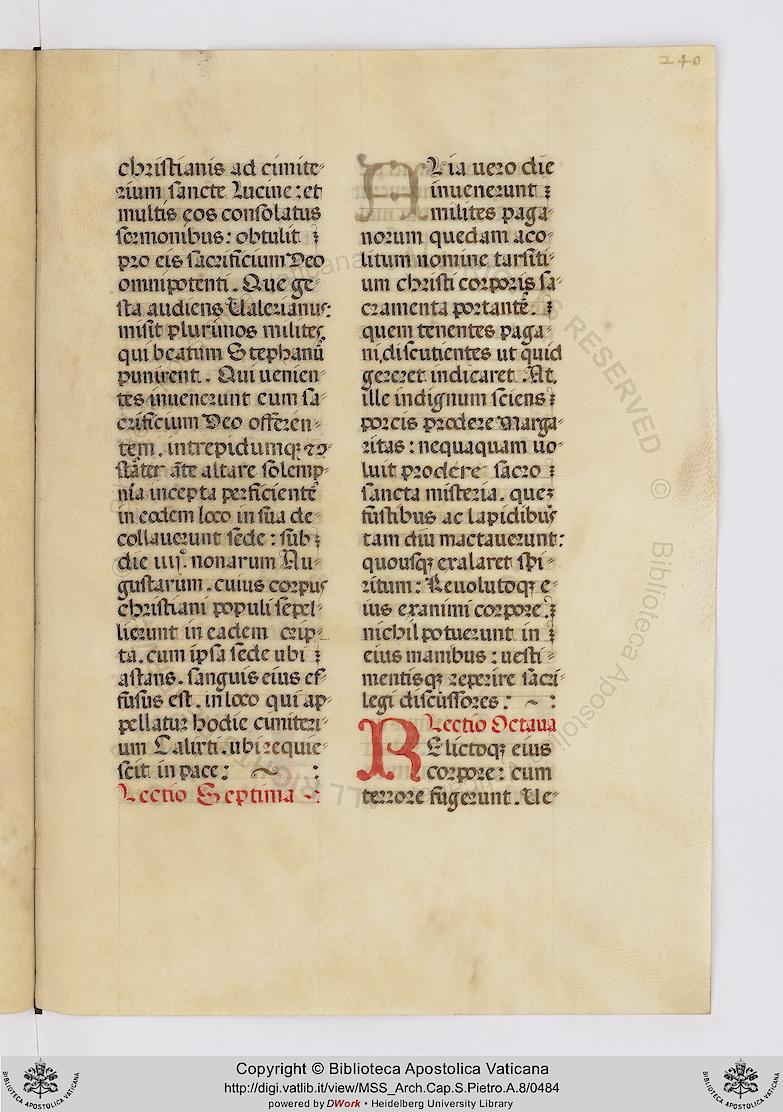 240
christianis ad cimite-
rium sancte Lucine: et
multis eos consolatus
sermonibus: obtulit ⁊
pro eis sacrificium Deo
omnipotenti. Que ge-
sta audiens Ualerianus:
misit plurimos milites.
qui beatum Stephanū
punirent. Qui uenien-
tes inuenerunt eum sa-
crificium Deo offeren-
tem. intrepidumqꝫ ⁊ 
stāter āte altare solemp-
nia incepta perficientē
in eodem loco in sua de-
collauerunt sede: sub ⁊
die iiij°. nonarum Au-
gustarum. cuius corpus
christiani populi sepel-
lierunt in eadem crip-
ta. cum ipsa sede ubi ⁊
astans. sanguis eius ef-
fusus est. in loco qui ap-
pellatur hodie cimiteri-
um Calixti. ubi requie-
scit in pace: ~ :
Lectio Septima ~:
ALia uero die
inuenerunt ⁊
milites paga-
norum quedam aco-
litum nomine tarsiti-
um christi corporis sa-
cramenta portantē. ⁊
quem tenentes paga-
ni, discutientes ut quid
gereret indicaret. At,
ille indignum sciens ⁊
porcis prodere Marga-
ritas: nequaquam uo-
luit prodere sacro ⁊
sancta misteria. queꝫ
fustibus ac lapidibus
tam diu mactauerunt:
quousqꝫ exalaret spi-
ritum: Reuolutoqꝫ e-
ius exanimi corpore ⁊
nichil potuerunt in ⁊
eius manibus: uesti-
mentisqꝫ reperire sacri-
legi discussores: ~ :
Lectio Octaua
RElictoqꝫ eius
corpore: cum
terrore fugerunt. Ue-
Copyright © Biblioteca Apostolica Vaticana
http://digi.vatlib.it/view/MSS_Arch.Cap.S.Pietro.A.8/0484
powered by DWork • Heidelberg University Library